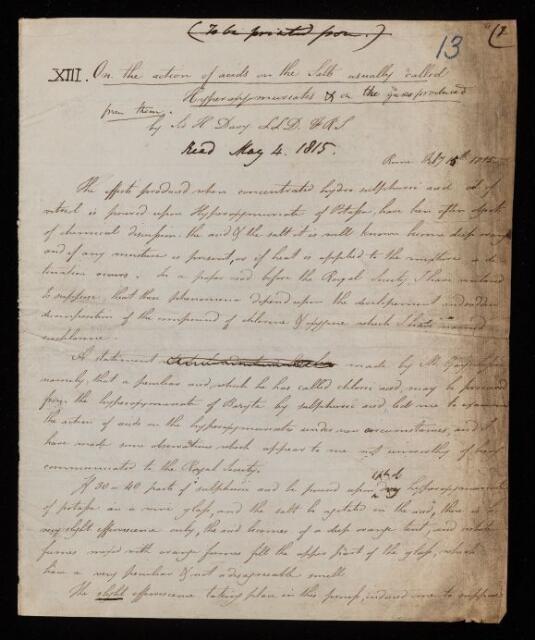 (To be printed from.)
13
(1
XIII. On the action of acids on the Salts usually called
Hyperoxymuriates & on the gases produced
from them.
by Sir H Davy LLD. FRS
Read May 4. 1815.
Rome Feby 15th 1815
The effects produced when concentrated sulphuric acid oil of
vitriol is poured upon Hyperoxymuriate of Potash, have been often objects
of chemical discussion the acid & the salt it is well known become deep orange
and if any moisture is present, or if heat is applied to the mixture a de
tonation occurs. In a paper read before the Royal Society, I have ventured
to suppose that these phenomena depend upon the developement & sudden
decomposition of the compound of chlorine & oxygene which I have named
euchlorine.
A statement made by M. Gay
namely, that a peculiar acid which he has called chloric acid may be procured
from the hyperoxymuriate of Baryta by sulphuric acid led me to examine
the action of acids on the hyperoxymuriates under new circumstances, and I
have made some observations which appear to me not unworthy of being
communicated to the Royal Society.
If 30 or 40 parts of sulphuric acid be poured upon one part of dry hyperoxymuriate
of potash in a wine glass, and the salt be agitated in the acid, there is
very slight effervescence only, the acid becomes of a deep orange tint, and white
fumes mixed with orange fumes fill the upper part of the glass, which
have a very peculiar & not disagreeable smell.
The slight effervescence taking place in this process, induced me to suppose